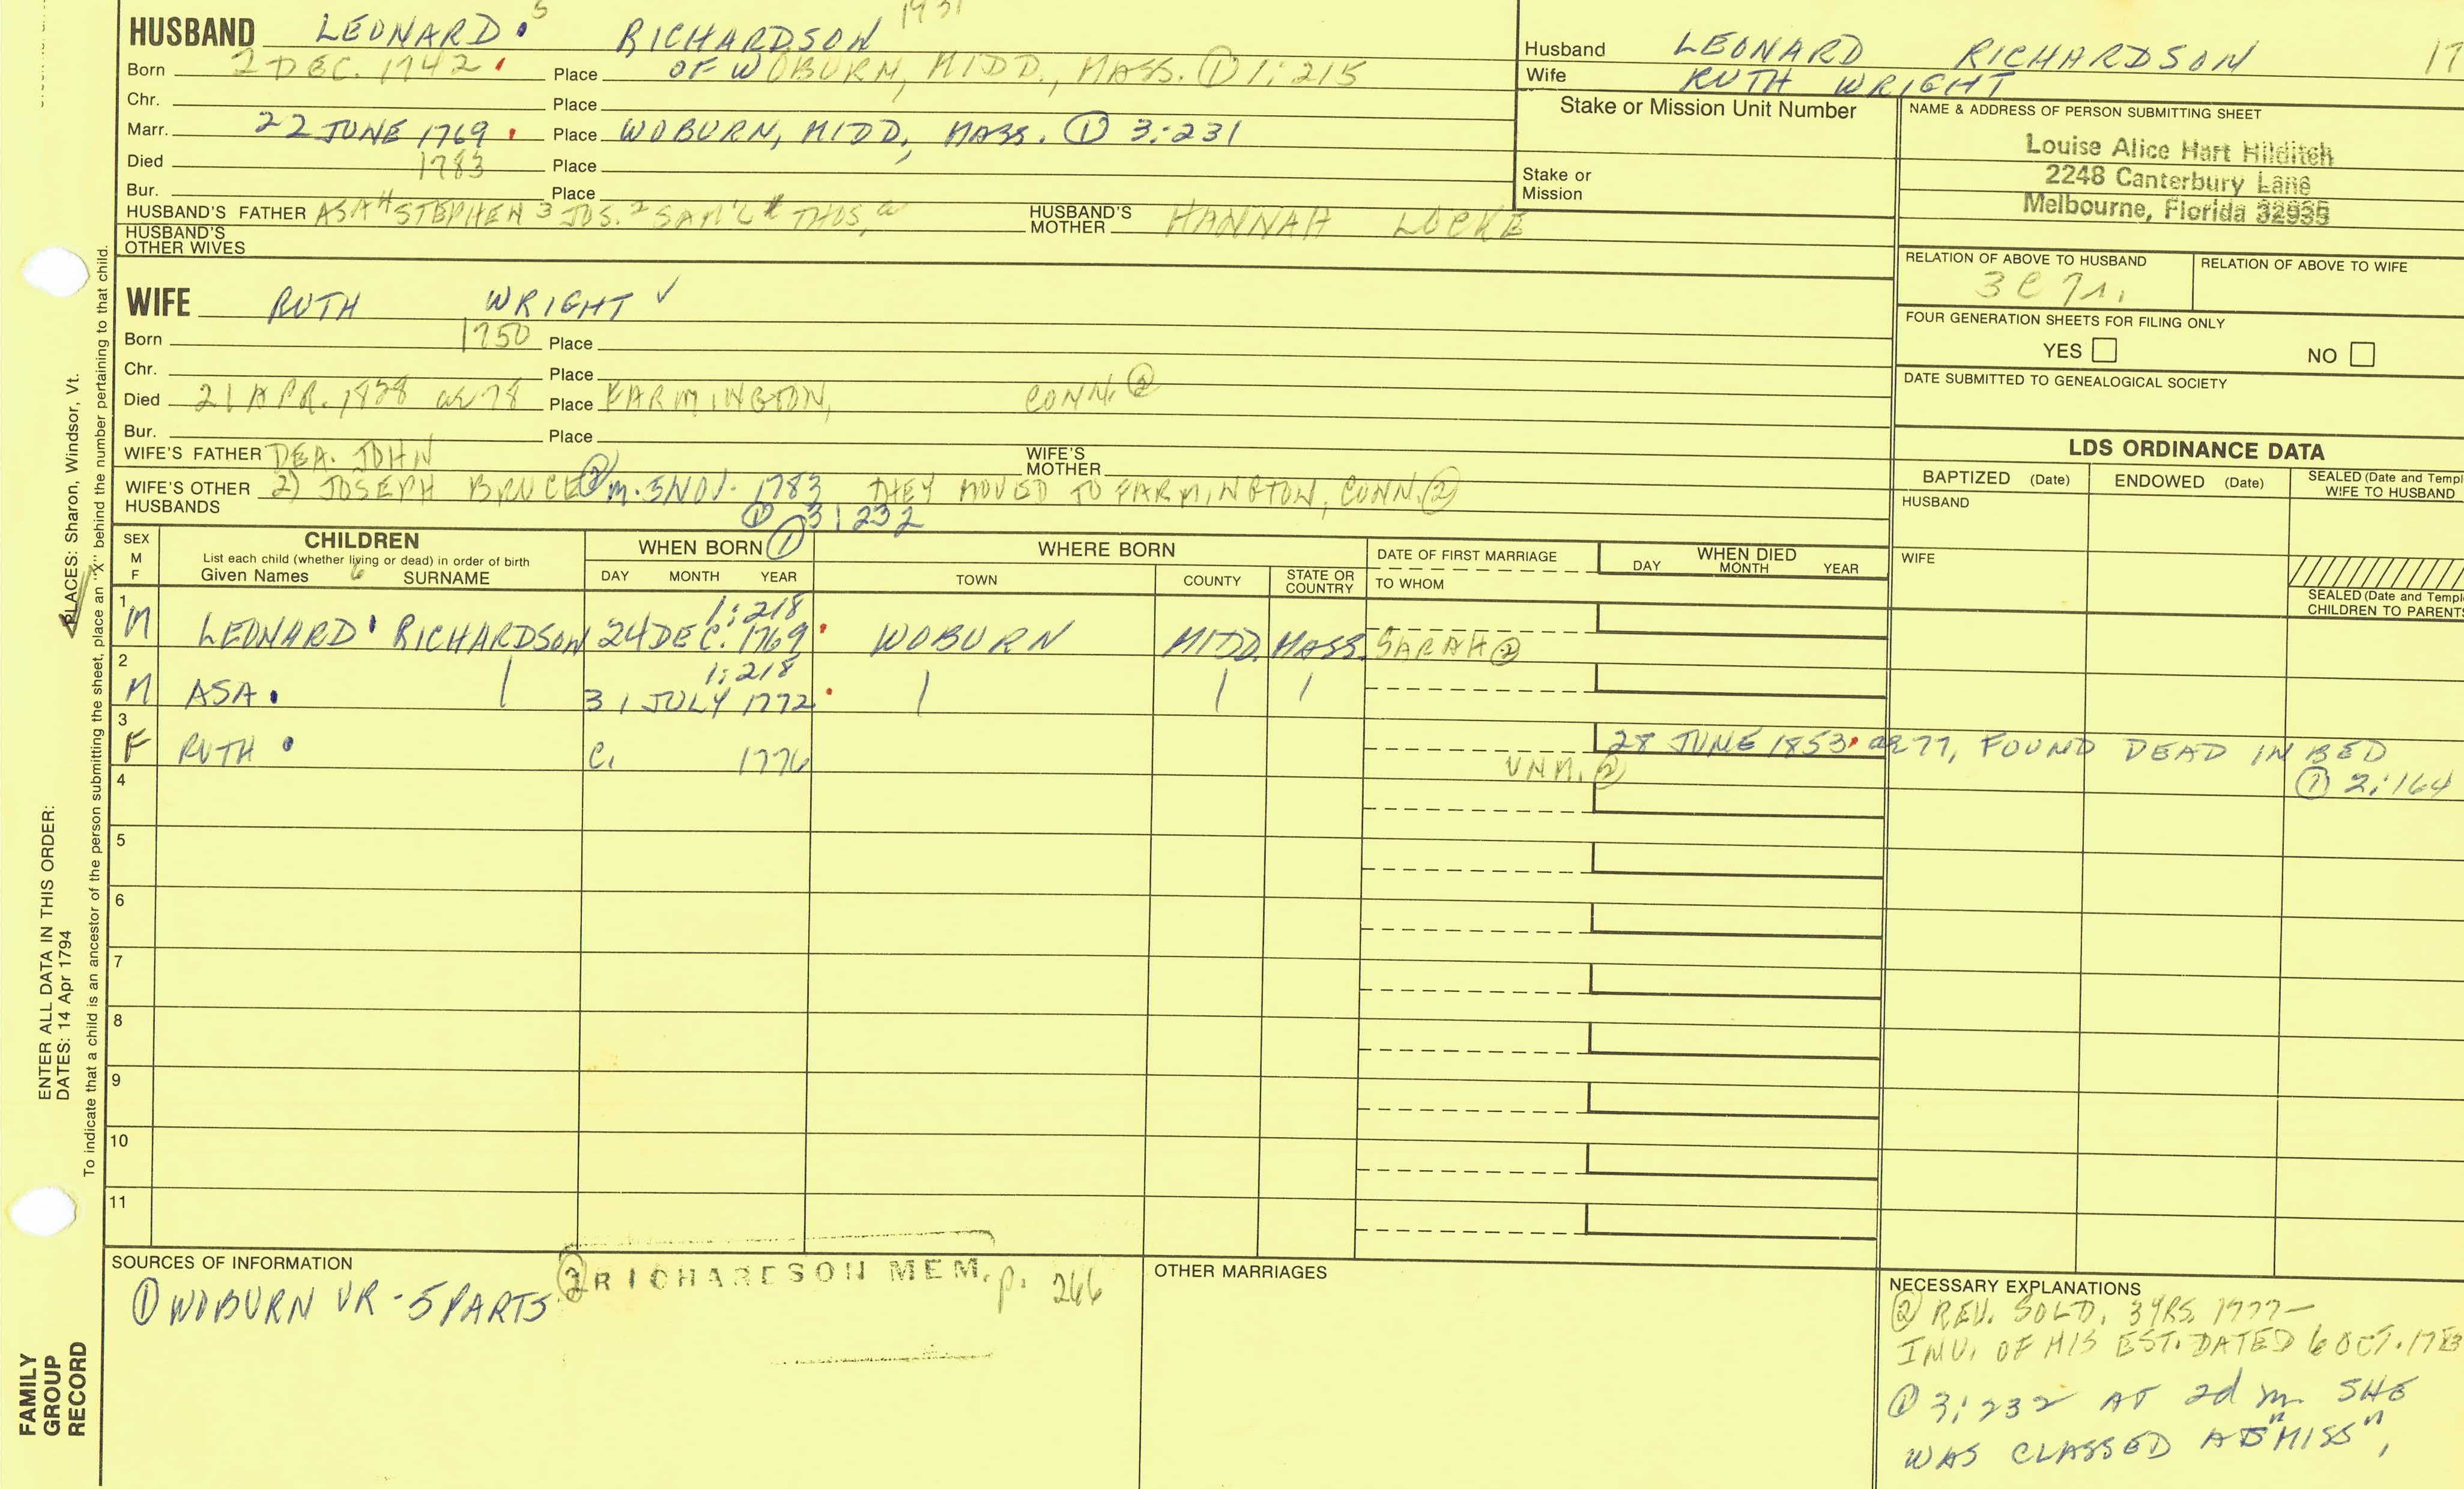 HUSBAND LEONARD 5 RICHARDSON 1931
Born 2 DEC. 1742 Place OF WOBURN, MIDD., MASS. ① 1:215
Chr. Place
Marr. 22 JUNE 1769 Place WOBURN, MIDD, MASS. ① 3:231
Died 1783 Place
Bur. Place
HUSBAND'S FATHER ASA 4 STEPHEN 3 JOS. 2 SAM'L 1 THOS. a HUSBAND'S MOTHER HANNAH LOCKE
HUSBAND'S OTHER WIVES
WIFE RUTH WRIGHT ✓
Born 1750 Place
Chr. Place
Died 21 APR. 1828 ae 78 Place FARMINGTON, CONN. ②
Bur. Place
WIFE'S FATHER DEA. JOHN WIFE'S MOTHER
WIFE'S OTHER HUSBANDS 2) JOSEPH BRUCE ② m. 5 NOV. 1783 THEY MOVED TO FARMINGTON, CONN. ②
① 3:232
Husband LEONARD RICHARDSON 17
Wife RUTH WRIGHT
Stake or Mission Unit Number
Stake or Mission
NAME & ADDRESS OF PERSON SUBMITTING SHEET
Louise Alice Hart Hilditch
2248 Canterbury Lane
Melbourne, Florida 32935
RELATION OF ABOVE TO HUSBAND
3C7r.
RELATION OF ABOVE TO WIFE
FOUR GENERATION SHEETS FOR FILING ONLY
YES NO
DATE SUBMITTED TO GENEALOGICAL SOCIETY
LDS ORDINANCE DATA
BAPTIZED (Date) ENDOWED (Date) SEALED (Date and Templ
WIFE TO HUSBAND
HUSBAND
WIFE
SEALED (Date and Templ
CHILDREN TO PARENTS
SEX M F
CHILDREN
List each child (whether living or dead) in order of birth
Given Names 6 SURNAME
WHEN BORN ①
DAY MONTH YEAR
WHERE BORN
TOWN COUNTY STATE OR COUNTRY
DATE OF FIRST MARRIAGE
TO WHOM
WHEN DIED
DAY MONTH YEAR
1:218
1 M LEONARD RICHARDSON 24 DEC. 1769 WOBURN MIDD. MASS. SARAH ②
1:218
2 M ASA 31 JULY 1772
3 F RUTH C. 1776 UNM. ② 28 JUNE 1853 ae 77, FOUND DEAD IN BED
① 2:164
4
5
6
7
8
9
10
11
SOURCES OF INFORMATION
① WOBURN VR - 5 PARTS
② RICHARDSON MEM. p. 266
OTHER MARRIAGES
NECESSARY EXPLANATIONS
② REV. SOLD. 3 YRS. 1777—
INV. OF HIS EST. DATED 6 OCT. 178
① 3:232 AT 2d m. SHE
WAS CLASSED AS "MISS",
ENTER ALL DATA IN THIS ORDER:
DATES: 14 Apr 1794
PLACES: Sharon, Windsor, Vt.
To indicate that a child is an ancestor of the person submitting the sheet, place an "X" behind the number pertaining to that child.
FAMILY
GROUP
RECORD